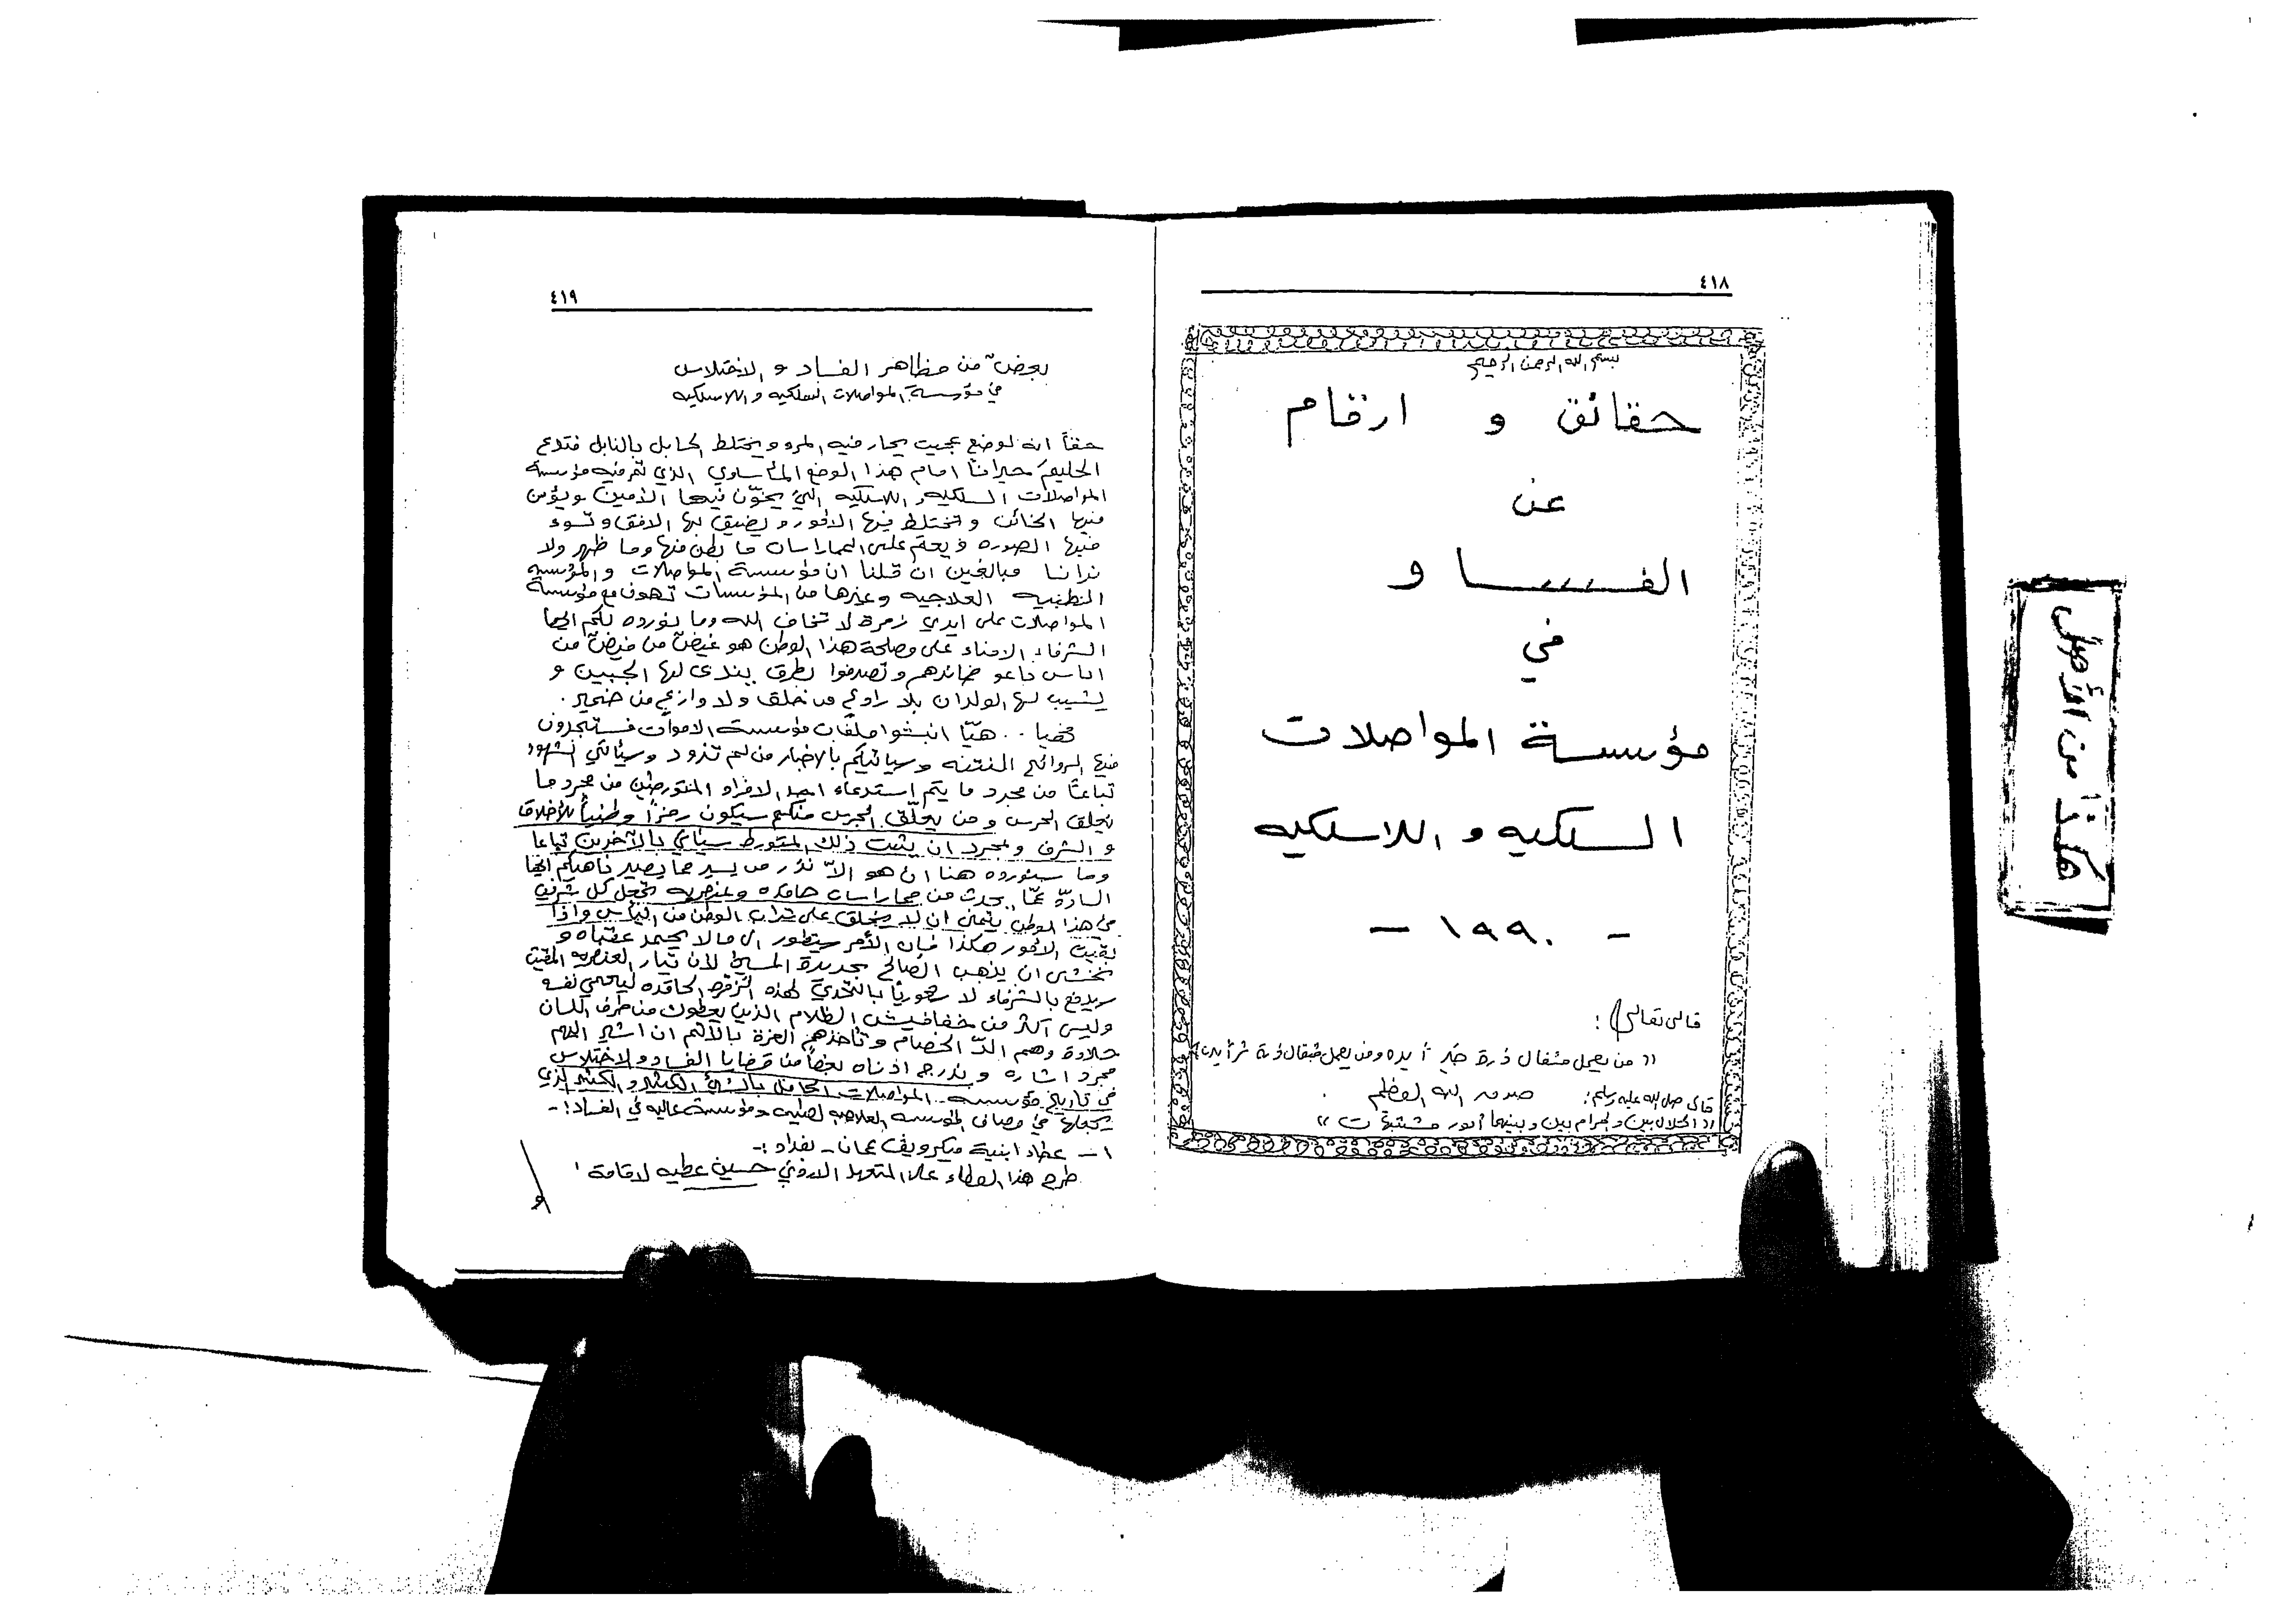 ٤١٨
بسم الله الرحمن الرحيم
حقائق و ارقام
عن
الفسا و
في
مؤسسة المواصلات
السلكيه و اللاسلكيه
- ١٩٩٠ -
قال تعالى :
(( من يعمل مثقال ذرة خير يره ومن يعمل مثقال ذرة شراً يره
صدق الله العظيم
قال صلى الله عليه وسلم :
(( الحلال بين و الحرام بين وبينهما أمور مشتبهات ))
٤١٩
بعض من مظاهر الفساد و الاختلاس
في مؤسسة المواصلات السلكيه و اللاسلكيه
حقاً انه لوضع عجيب يحار فيه المرء ويختلط الحابل بالنابل فتدع
الحليم حيراناً امام هذا الوضع المأساوي الذي تمر فيه مؤسسة
المواصلات السلكيه و اللاسلكيه التي يخوّن فيها الأمين ويؤمن
فيها الخائن و تختلط فيها الامور و يضيق بها الافق و تسوء
فيها الصوره و يعتم على الممارسات ما بطن منها وما ظهر ولا
ترانا مبالغين ان قلنا ان مؤسسة المواصلات و المؤسسة
الطبيه العلاجيه وغيرها من المؤسسات تهون مع مؤسسة
المواصلات على ايدي زمرة لا تخاف الله وما نورده لكم ايها
الشرفاء الامناء على مصلحة هذا الوطن هو غيض من فيض من
اناس باعو ضمائرهم و تصرفوا بطرق يندى لها الجبين و
يشيب لها الولدان بلا رادع من خلق ولا وازع من ضمير .
فهيا .. هيّا انبشوا ملفات مؤسسة الاموات فستجدون
فيها الروائح المنتنه و سيأتيكم بالاخبار من لم تزود و سيأتي الشهود
تباعاً من مجرد ما يتم استدعاء احد الافراد المتورطين من مجرد ما
يعلق الجرس و من يعلّق الجرس منكم سيكون رمزاً وطنياً للأخلاق
و الشرف و لمجرد ان يثبت ذلك المتورط سيأتي بالآخرين تباعا
وما سنورده هنا ان هو الاّ نذر من يسير مما يصير ناهيكم ايها
السادّة عمّا يحدث من ممارسات حاقده و عنصريه تجعل كل شريف
في هذا الوطن يتمنى ان لا يخلق على تراب الوطن من اليأس و اذا
بقيت الامور هكذا فإن الأمر سيتطور الى مالا يحمد عقباه و
نخشى ان يذهب الصالح بجريرة المسيئ لان تيار العنصريه المقيت
سيدفع بالشرفاء لا شعورياً بالتحدي لهذه الزمره الحاقده ليحمي نفسه
وليس أكثر من خفافيش الظلام الذين يعطوك من طرف اللسان
حلاوة وهم الدّ الخصام و تأخذهم العزة بالاثم ان اشير اليهم
مجرد اشاره و ندرج ادناه بعضاً من قضايا الفساد و الاختلاس
في تاريخ مؤسسة المواصلات الحافل بالسيئ الكثير و الكثير الذي
يجعلها في مصاف المؤسسه العلاجيه الطبيه ومؤسسة عاليه في الفساد :-
١ - عطاء ابنية ميكرويف عمان - بغداد :-
طرح هذا العطاء على المتعهد الاردني حسين عطيه لاقامة
هكذا من الأصل